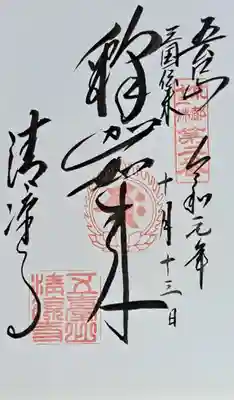 五台山
令和元年
十月十三日
三国伝来
釈迦如来
清凉寺
五臺山
清凉寺